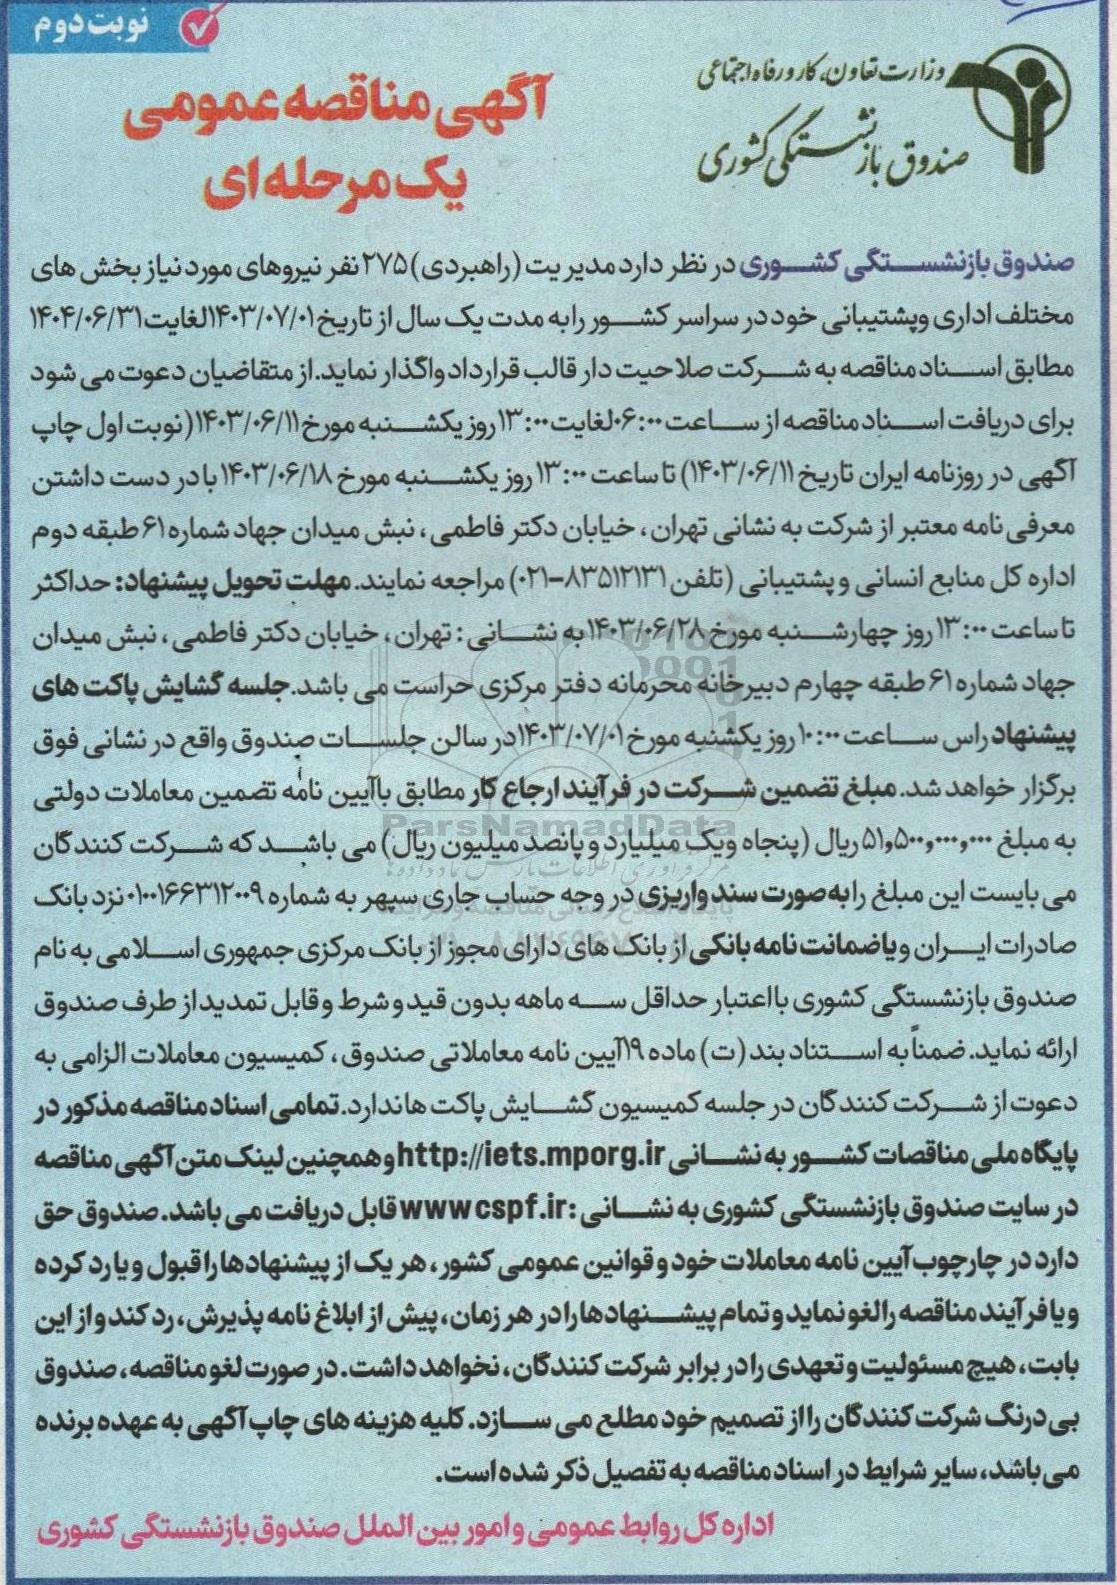 نوبت دوم
وزارت تعاون، کار و رفاه اجتماعی
صندوق بازنشستگی کشوری
آگهی مناقصه عمومی
یک مرحله ای
صندوق بازنشستگی کشوری در نظر دارد مدیریت (راهبردی) ۲۷۵ نفر نیروهای مورد نیاز بخش های
مختلف اداری وپشتیبانی خود در سراسر کشور را به مدت یک سال از تاریخ ۱۴۰۳/۰۷/۰۱ لغایت ۱۴۰۴/۰۶/۳۱
مطابق اسناد مناقصه به شرکت صلاحیت دار قالب قرارداد واگذار نماید. از متقاضیان دعوت می شود
برای دریافت اسناد مناقصه از ساعت ۰۶:۰۰ لغایت ۱۳:۰۰ روز یکشنبه مورخ ۱۴۰۳/۰۶/۱۱ (نوبت اول چاپ
آگهی در روزنامه ایران تاریخ ۱۴۰۳/۰۶/۱۱) تا ساعت ۱۳:۰۰ روز یکشنبه مورخ ۱۴۰۳/۰۶/۱۸ با در دست داشتن
معرفی نامه معتبر از شرکت به نشانی تهران، خیابان دکتر فاطمی، نبش میدان جهاد شماره ۶۱ طبقه دوم
اداره کل منابع انسانی و پشتیبانی (تلفن ۸۳۵۱۲۱۳۱-۰۲۱) مراجعه نمایند. مهلت تحویل پیشنهاد: حداکثر
تا ساعت ۱۳:۰۰ روز چهارشنبه مورخ ۱۴۰۳/۰۶/۲۸ به نشانی: تهران، خیابان دکتر فاطمی، نبش میدان
جهاد شماره ۶۱ طبقه چهارم دبیرخانه محرمانه دفتر مرکزی حراست می باشد. جلسه گشایش پاکت های
پیشنهاد راس ساعت ۱۰:۰۰ روز یکشنبه مورخ ۱۴۰۳/۰۷/۰۱ در سالن جلسات صندوق واقع در نشانی فوق
برگزار خواهد شد. مبلغ تضمین شرکت در فرآیند ارجاع کار مطابق باآیین نامه تضمین معاملات دولتی
به مبلغ ۵۱,۵۰۰,۰۰۰,۰۰۰ ریال (پنجاه ویک میلیارد و پانصد میلیون ریال) می باشد که شرکت کنندگان
ParsNamadData
می بایست این مبلغ را به صورت سند واریزی در وجه حساب جاری سپهر به شماره ۰۱۰۰۱۶۶۳۱۲۰۰۹ نزد بانک
صادرات ایران و یا ضمانت نامه بانکی از بانک های دارای مجوز از بانک مرکزی جمهوری اسلامی به نام
صندوق بازنشستگی کشوری با اعتبار حداقل سه ماهه بدون قید و شرط و قابل تمدید از طرف صندوق
ارائه نماید. ضمناً به استناد بند (ت) ماده ۱۹ آیین نامه معاملاتی صندوق، کمیسیون معاملات الزامی به
دعوت از شرکت کنندگان در جلسه کمیسیون گشایش پاکت ها ندارد. تمامی اسناد مناقصه مذکور در
پایگاه ملی مناقصات کشور به نشانی http://iets.mporg.ir و همچنین لینک متن آگهی مناقصه
در سایت صندوق بازنشستگی کشوری به نشانی: www.cspf.ir قابل دریافت می باشد. صندوق حق
دارد در چارچوب آیین نامه معاملات خود و قوانین عمومی کشور، هر یک از پیشنهادها را قبول و یا رد کرده
و یا فرآیند مناقصه را لغو نماید و تمام پیشنهادها را در هر زمان، پیش از ابلاغ نامه پذیرش، رد کند و از این
بابت، هیچ مسئولیت و تعهدی را در برابر شرکت کنندگان، نخواهد داشت. در صورت لغو مناقصه، صندوق
بی درنگ شرکت کنندگان را از تصمیم خود مطلع می سازد. کلیه هزینه های چاپ آگهی به عهده برنده
می باشد، سایر شرایط در اسناد مناقصه به تفصیل ذکر شده است.
اداره کل روابط عمومی و امور بین الملل صندوق بازنشستگی کشوری